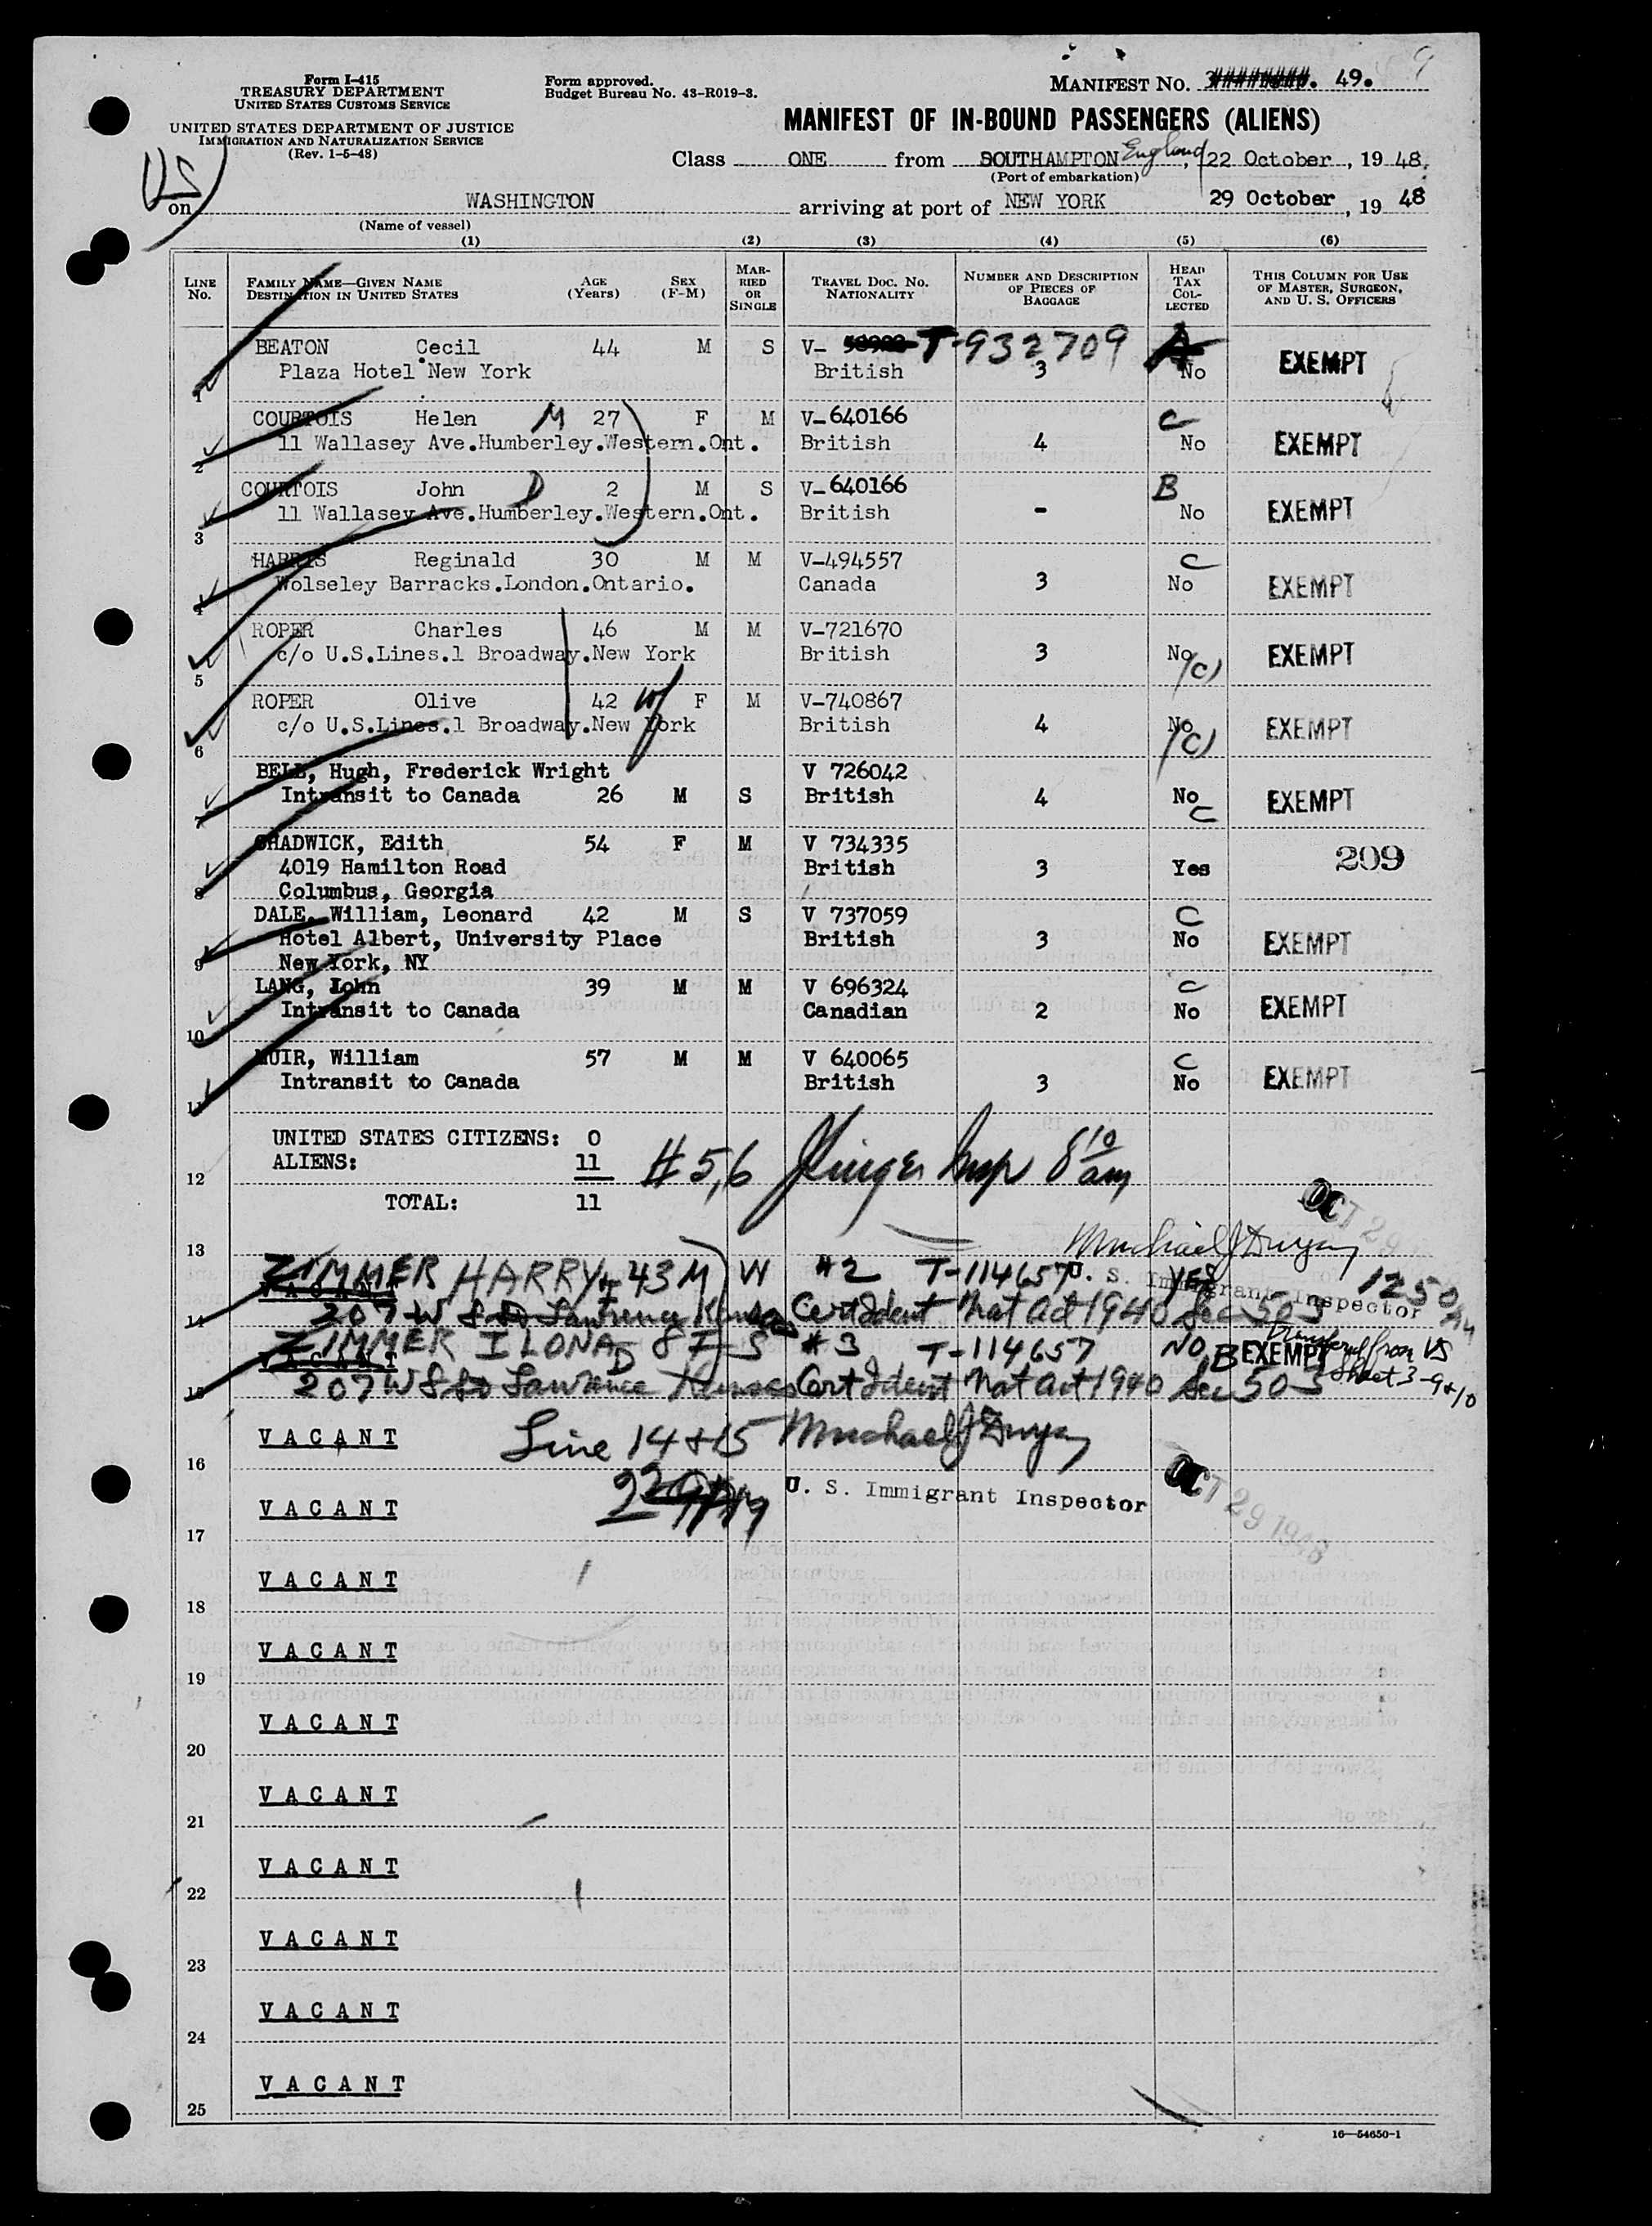 Form I-415
TREASURY DEPARTMENT
UNITED STATES CUSTOMS SERVICE
UNITED STATES DEPARTMENT OF JUSTICE
IMMIGRATION AND NATURALIZATION SERVICE
(Rev. 1-5-48)
Form approved.
Budget Bureau No. 43-R019-3.
MANIFEST No. 49. 9
MANIFEST OF IN-BOUND PASSENGERS (ALIENS)
US
Class ONE from SOUTHAMPTON England, 22 October, 19 48.
(Port of embarkation)
on WASHINGTON arriving at port of NEW YORK 29 October, 19 48
(Name of vessel)
(1) (2) (3) (4) (5) (6)
LINE No. FAMILY NAME—GIVEN NAME DESTINATION IN UNITED STATES AGE (Years) SEX (F-M) MARRIED OR SINGLE TRAVEL DOC. No. NATIONALITY NUMBER AND DESCRIPTION OF PIECES OF BAGGAGE HEAD TAX COLLECTED THIS COLUMN FOR USE OF MASTER, SURGEON, AND U. S. OFFICERS
BEATON Cecil 44 M S V- T-932709 A
1 Plaza Hotel New York British 3 No EXEMPT
COURTOIS Helen M 27 F M V-640166 C
2 11 Wallasey Ave.Humberley.Western.Ont. British 4 No EXEMPT
COURTOIS John D 2 M S V-640166 B
3 11 Wallasey Ave.Humberley.Western.Ont. British - No EXEMPT
HARRIS Reginald 30 M M V-494557 C
4 Wolseley Barracks.London.Ontario. Canada 3 No EXEMPT
ROPER Charles 46 M M V-721670
5 c/o U.S.Lines.1 Broadway.New York British 3 No (C) EXEMPT
ROPER Olive 42 W F M V-740867
6 c/o U.S.Lines.1 Broadway.New York British 4 No (C) EXEMPT
BELL, Hugh, Frederick Wright V 726042
7 Intransit to Canada 26 M S British 4 No C EXEMPT
CHADWICK, Edith 54 F M V 734335 209
4019 Hamilton Road British 3 Yes
8 Columbus, Georgia
DALE, William, Leonard 42 M S V 737059 C
Hotel Albert, University Place British 3 No EXEMPT
9 New York, NY
LANG, John 39 M M V 696324 C
10 Intransit to Canada Canadian 2 No EXEMPT
MUIR, William 57 M M V 640065 C
11 Intransit to Canada British 3 No EXEMPT
UNITED STATES CITIZENS: 0
12 ALIENS: 11 #5,6 Insp 8 10 am
TOTAL: 11 OCT 29
13 Michael J Dwyer
ZIMMER HARRY 43 M W #2 T-114657 YES 1250
U. S. Immigrant Inspector
VACANT
14 207 W Lawrence Kansas Cert Ident Nat Act 1940 Sec 503
ZIMMER ILONA D 8 F S #3 T-114657 NO B EXEMPT Transferred from US
VACANT
15 207 W Lawrence Kansas Cert Ident Nat Act 1940 Sec 503 Sheet 3-9+10
16 VACANT Line 14+15 Michael J Dwyer
17 VACANT U. S. Immigrant Inspector OCT 29 1948
18 VACANT
19 VACANT
20 VACANT
21 VACANT
22 VACANT
23 VACANT
24 VACANT
25 VACANT
16—54650-1